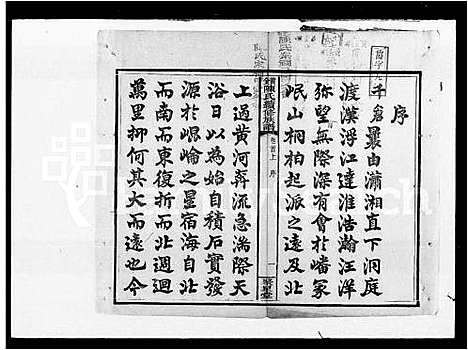 序
曩由瀟湘直下洞庭
渡漢浮江達淮浩瀚汪洋
弥望無際深有會於嶓冢
岷山桐柏起派之遠及北
陳氏續修族譜
卷首上 序
一
上過黃河奔流急湍際天
浴日以為始自積石實發
源於崐崙之星宿海自北
而南而東復折而北週迴
萬里抑何其大而遠也今